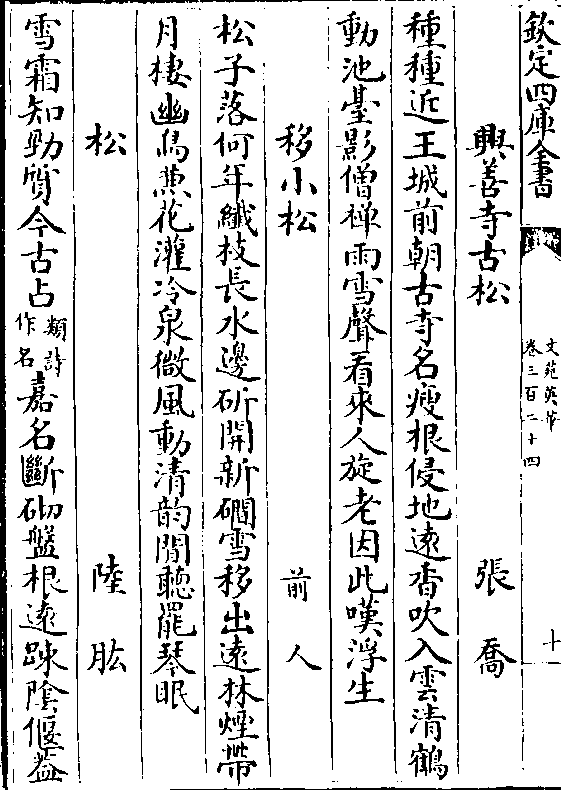 欽定四庫全書
文苑英華
卷三百二十四
十
興善寺古松 張喬
種種近王城前朝古寺名瘦根侵地遠香吹入雲清鶴
動池臺影僧禅雨雪聲看來人旋老因此嘆浮生
移小松 前人
松子落何年纖枝長水邊斫開新磵雪移出遠林煙帶
月棲幽鳥兼花灌冷泉微風動清韵閒聽罷琴眠
松 陸肱
雪霜知勁質今古占類詩作名嘉名斷砌盤根遠踈陰偃葢